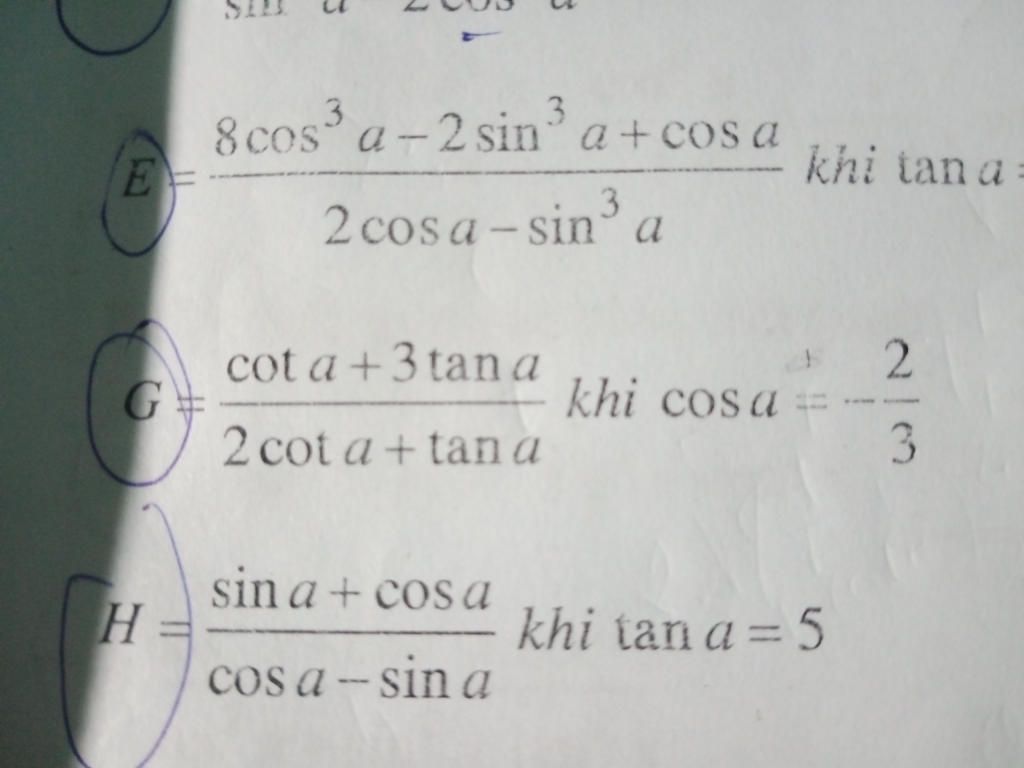 E = \frac{8\cos^3 a - 2\sin^3 a + \cos a}{2\cos a - \sin^3 a} khi tan a =
G = \frac{\cot a + 3\tan a}{2\cot a + \tan a} khi cos a = -\frac{2}{3}
H = \frac{\sin a + \cos a}{\cos a - \sin a} khi tan a = 5